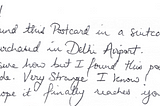 !
und this Postcard in a suitc
urchased in Delhi Airport.
sure how but I found this pos
de. Very Strange I know!
ope it finally reaches yo